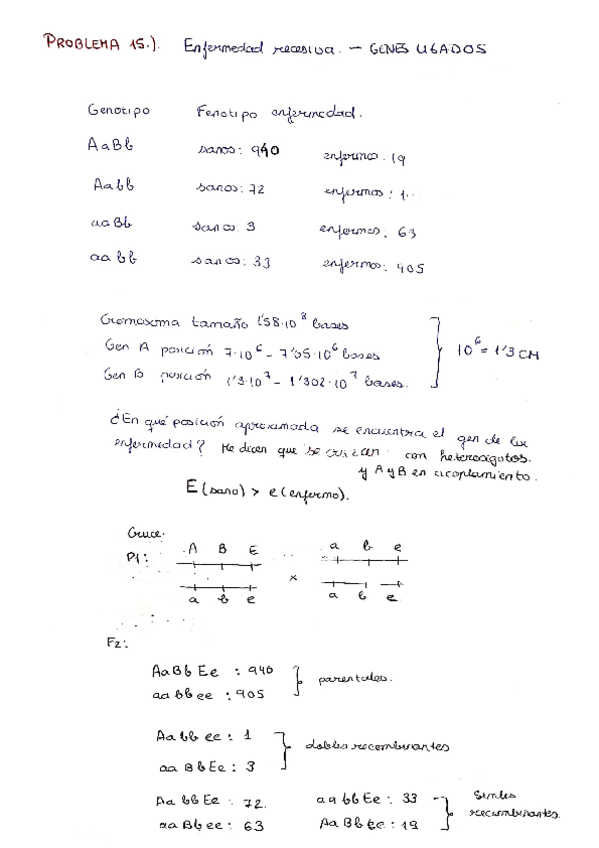 PROBLEMA 15.). Enfermedad recesiva. - GENES LIGADOS
Genotipo Fenotipo enfermedad.
AaBb sanos: 940 enfermos: 19
Aabb sanos: 72 enfermos: 1.
aaBb sanos: 3 enfermos: 63
aabb sanos: 33 enfermos: 905
Cromosoma tamaño 1'58·10⁸ bases
Gen A posición 7·10⁶ - 7'05·10⁶ bases
10⁶ = 1'3 CM
Gen B posición 1'3·10⁷ - 1'302·10⁷ bases.
¿En qué posición aproximada se encuentra el gen de la
enfermedad? Me dicen que se cruzan con heterocigotos.
y A y B en acoplamiento.
E (sano) > e (enfermo).
Cruce:
P1: A B E a b e
x
a b e a b e
F2:
AaBbEe : 940
parentales.
aabbee : 905
Aabbee : 1
dobles recombinantes
aaBbEe : 3
AabbEe : 72. aabbEe : 33 Simples
aaBbee : 63 AaBbee : 19 recombinantes.